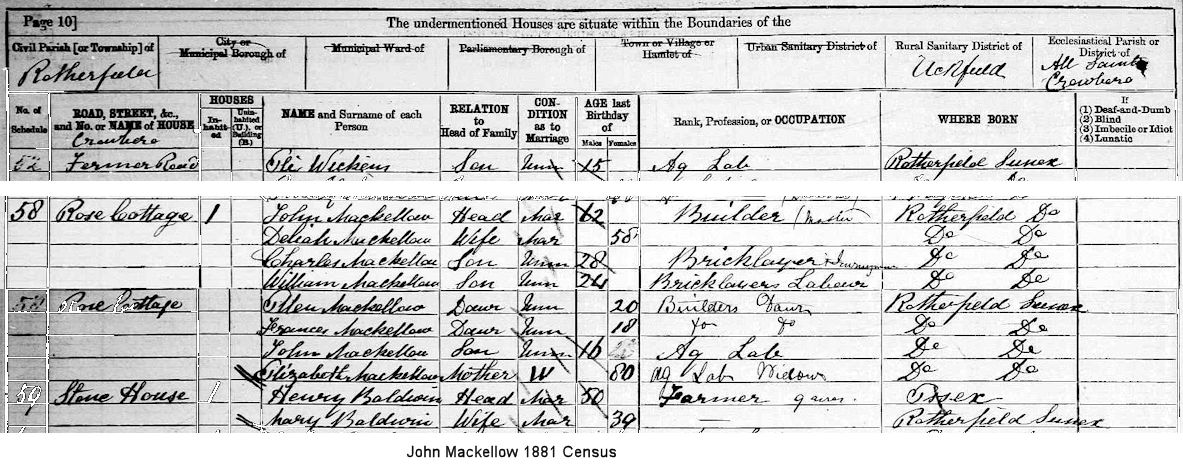 Page 10] The undermentioned Houses are situate within the Boundaries of the
Civil Parish [or Township] of City or Municipal Borough of Municipal Ward of Parliamentary Borough of Town or Village or Hamlet of Urban Sanitary District of Rural Sanitary District of Ecclesiastical Parish or District of
Rotherfield Uckfield All Saints Crowboro
No. of Schedule ROAD, STREET, &c., and No. or NAME of HOUSE HOUSES Inhabited Uninhabited (U.), or Building (B.) NAME and Surname of each Person RELATION to Head of Family CONDITION as to Marriage AGE last Birthday of Males Females Rank, Profession, or OCCUPATION WHERE BORN If (1) Deaf-and-Dumb (2) Blind (3) Imbecile or Idiot (4) Lunatic
Crowboro
52 Fermor Road Eli Wickens Son Unm 15 Ag Lab Rotherfield Sussex
58 Rose Cottage 1 John Mackellow Head Mar 62 Builder (Master Rotherfield Do
Deliah Mackellow Wife Mar 58 Do Do
Charles Mackellow Son Unm 28 Bricklayer Do Do
William Mackellow Son Unm 24 Bricklayers Labour Do Do
58 Rose Cottage Ellen Mackellow Daur Unm 20 Builders Daur Rotherfield Sussex
Frances Mackellow Daur Unm 18 Do Do Do Do
John Mackellow Son Unm 16 Ag Lab Do Do
Elizabeth Mackellow Mother W 80 Ag Lab Widow Do Do
59 Stone House 1 Henry Baldwin Head Mar 50 Farmer Essex
Mary Baldwin Wife Mar 39 Rotherfield Sussex
John Mackellow 1881 Census